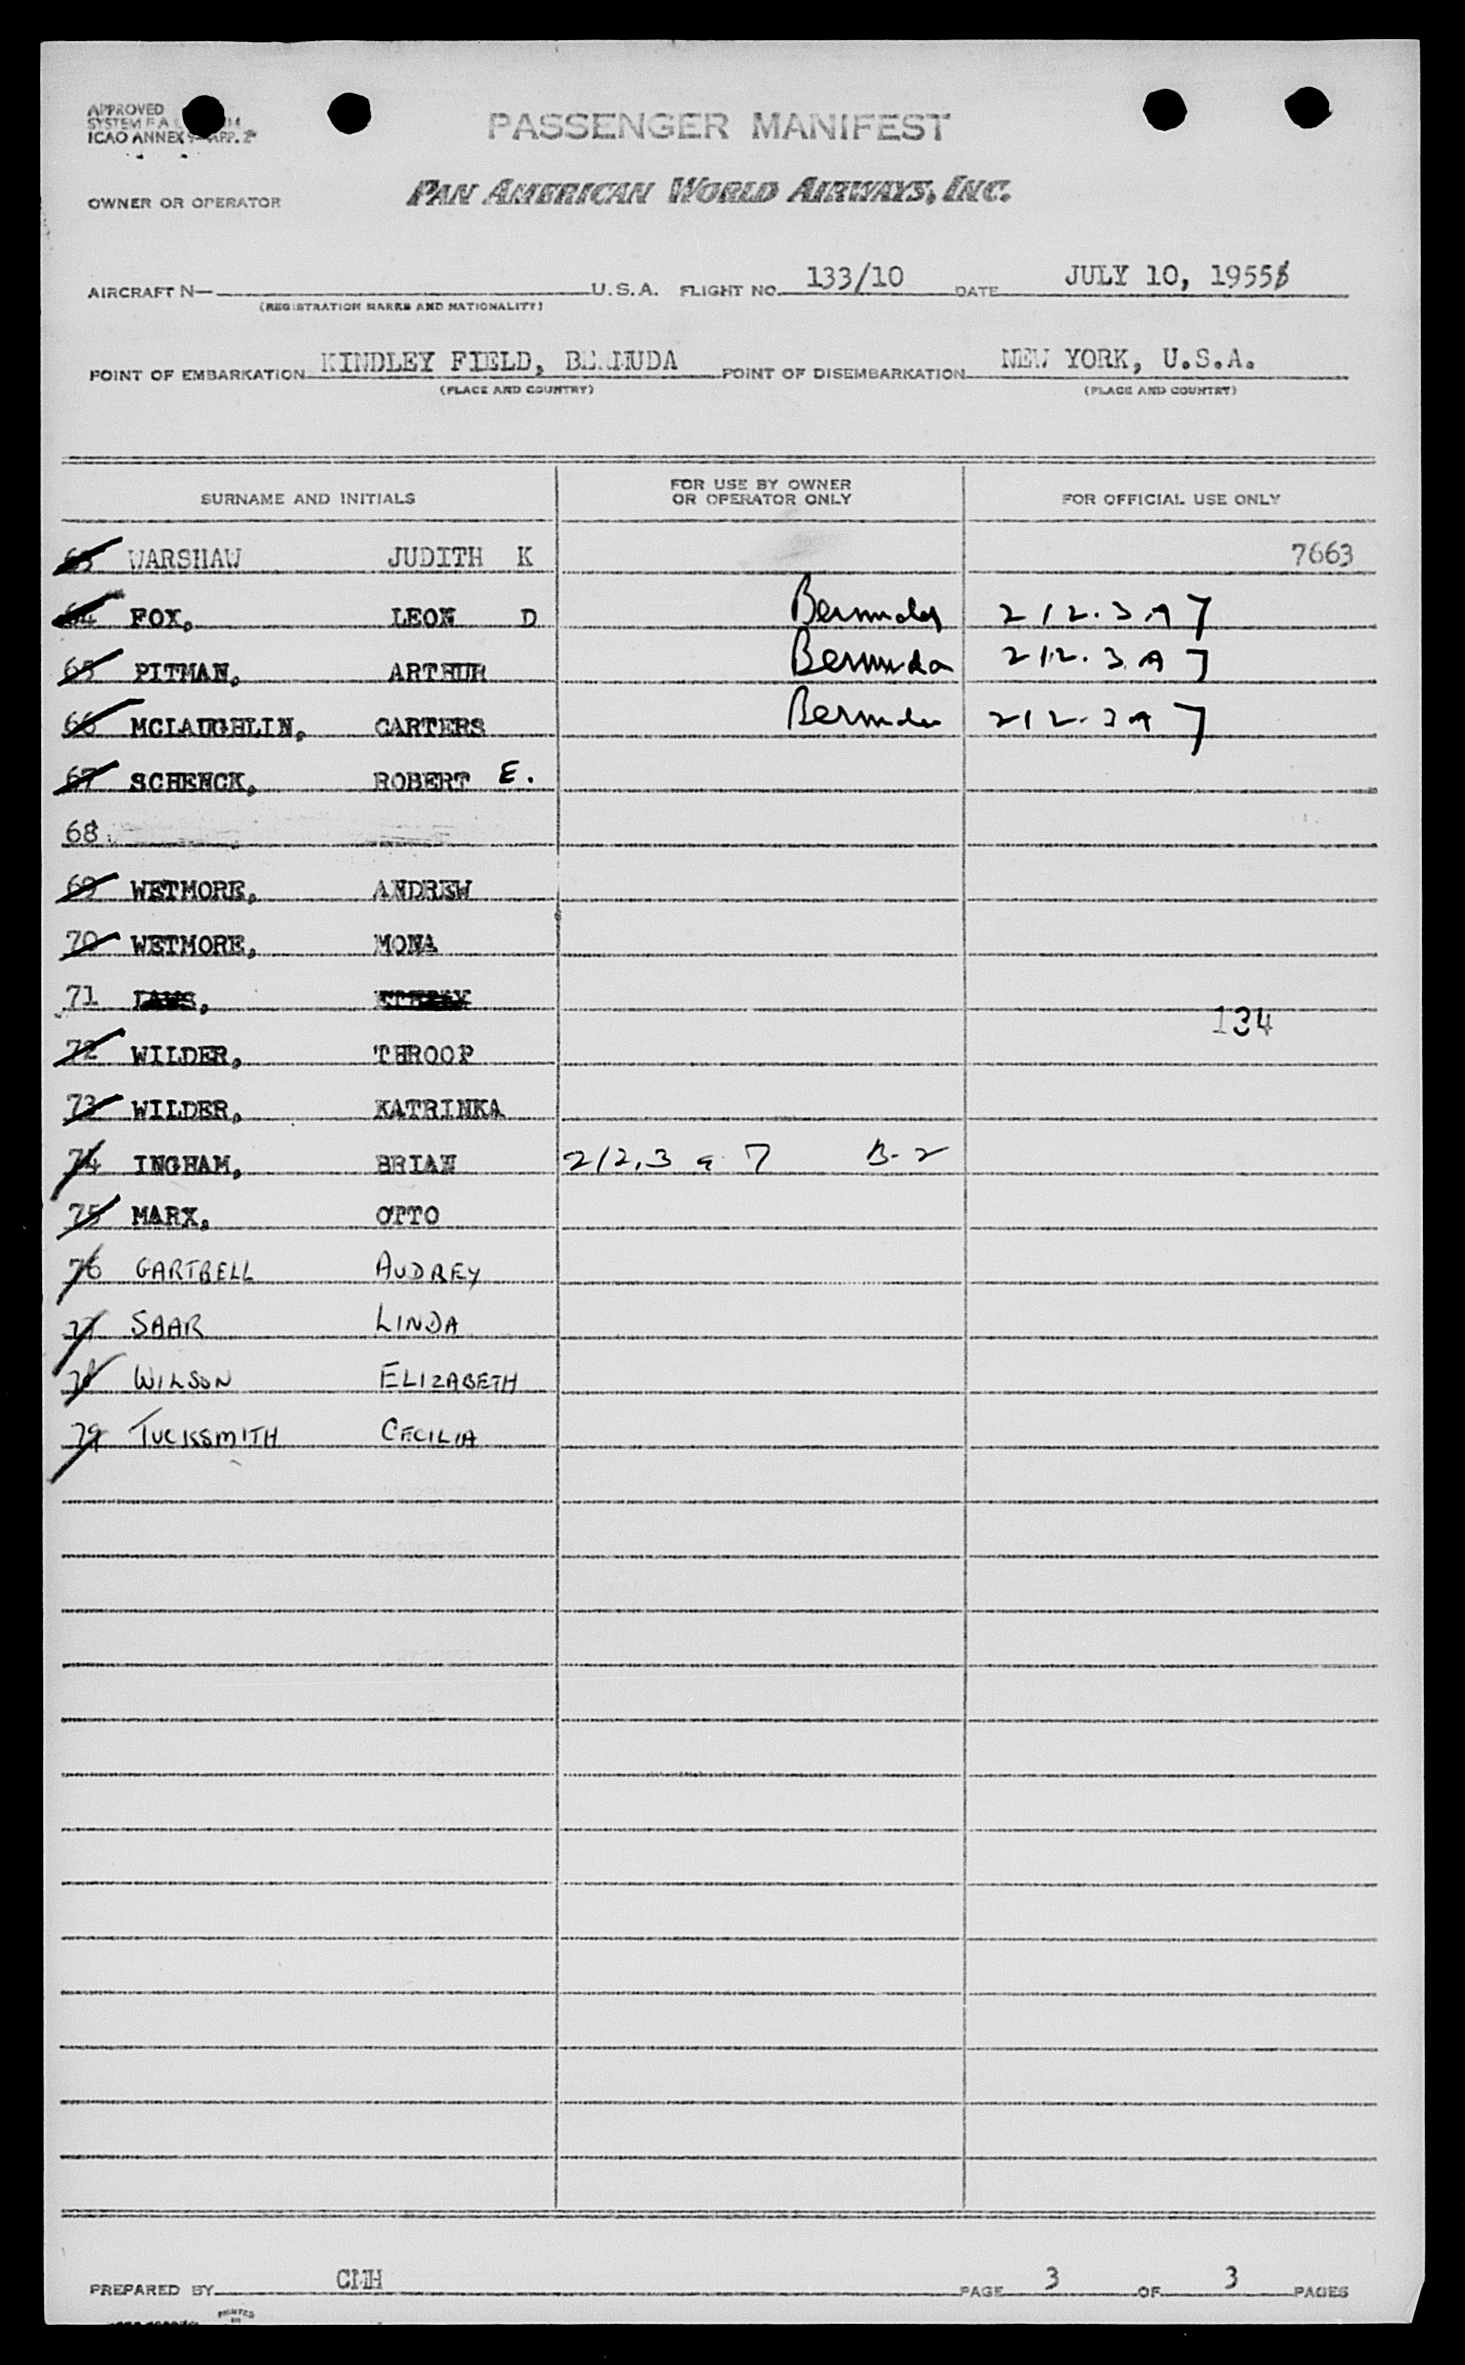 APPROVED
SYSTEM F A
ICAO ANNEX 9- APP. 2
PASSENGER MANIFEST
OWNER OR OPERATOR PAN AMERICAN WORLD AIRWAYS, INC.
AIRCRAFT N— U.S.A. FLIGHT NO. 133/10 DATE JULY 10, 1955
(REGISTRATION MARKS AND NATIONALITY)
POINT OF EMBARKATION KINDLEY FIELD, BERMUDA POINT OF DISEMBARKATION NEW YORK, U.S.A.
(PLACE AND COUNTRY) (PLACE AND COUNTRY)
SURNAME AND INITIALS FOR USE BY OWNER OR OPERATOR ONLY FOR OFFICIAL USE ONLY
63 WARSHAW JUDITH K 7663
64 FOX, LEON D Bermuda 212.3 A 7
65 PITMAN, ARTHUR Bermuda 212.3 A 7
66 MCLAUGHLIN, CARTERS Bermuda 212.3 A 7
67 SCHENCK, ROBERT E.
68
69 WETMORE, ANDREW
70 WETMORE, MONA
71
134
72 WILDER, THROOP
73 WILDER, KATRINKA
74 INGHAM, BRIAN 212.3 a 7 B-2
75 MARX, OTTO
76 GARTBELL AUDREY
77 SAAR LINDA
78 WILSON ELIZABETH
79 TUCKSMITH CECILIA
PREPARED BY CMH PAGE 3 OF 3 PAGES
PRINTED